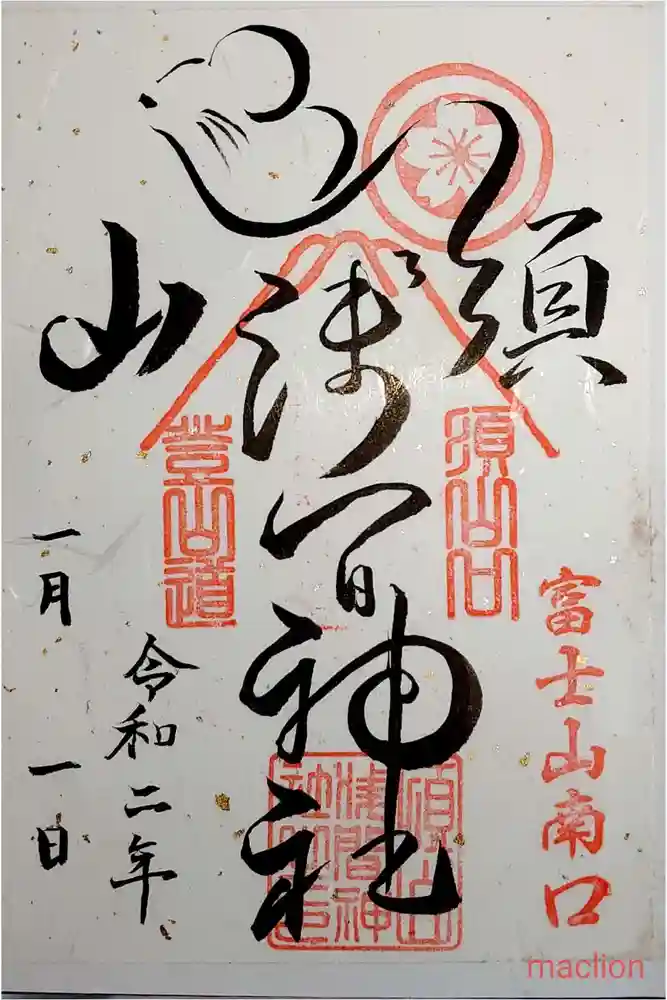 富士山南口
須山
浅間神社
須山口
登山道
須山浅間神社之印
令和二年
一月一日
maclion